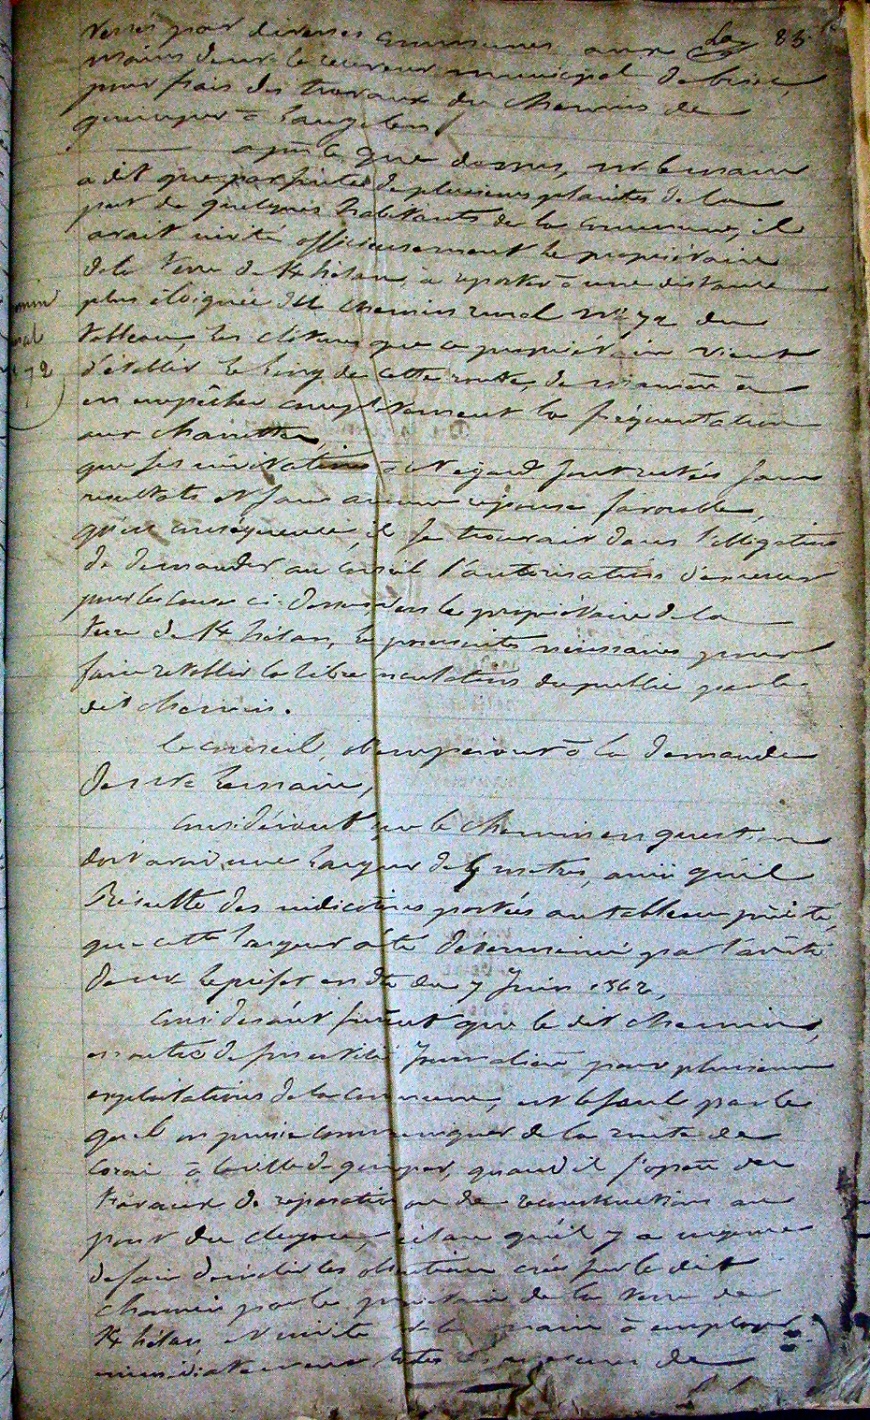 83
versés par diverses communes aux
mains de mr le receveur municipal de
pour frais des travaux du chemin de
quimper à Langolen
après que dessus, mr le maire
a dit que par suite de plusieurs plaintes de la
part de quelques habitants de la commune, il
avait invité officieusement le propriétaire
de la terre de à reporter à une distance
plus éloignée du chemin rural n° 72 du
tableau, les clôtures que ce propriétaire vient
d'établir le long de cette route, de manière à
en empêcher complètement la fréquentation
aux charrettes,
que ses invitations à cet égard sont restées sans
résultats et sans aucune réponse favorable,
qu'en conséquence, il se trouvait dans l'obligation
de demander au conseil l'autorisation d'exercer
pour les causes ci-dessus, vers le propriétaire de la
terre de les poursuites nécessaires pour
faire rétablir la libre circulation du public par le
dit chemin.
Le conseil, obtempérant à la demande
de mr le maire,
Considérant que le chemin en question
doit avoir une largeur de mètres, ainsi qu'il
Résulte des indications portées au tableau précité,
que cette largeur a été déterminée par l'arrêté
de mr le préfet en date du 7 Juin 1862,
Considérant surtout que le dit chemin,
en outre de son utilité journalière pour plusieurs
exploitations de la commune, est le seul par le
quel on puisse communiquer de la route de
Corai à la ville de quimper, quand il s'opère des
travaux de réparation ou de reconstruction au
pont du qu'il y a urgence
de faire démolir les obstructions créées sur le dit
chemin par le propriétaire de la terre de
et invite mr le maire à employer
immédiatement toutes les mesures de